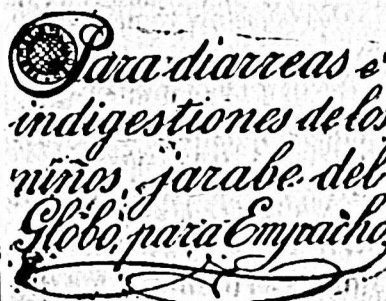 Para diarreas e
indigestiones de los
niños, jarabe del
Globo, para Empacho